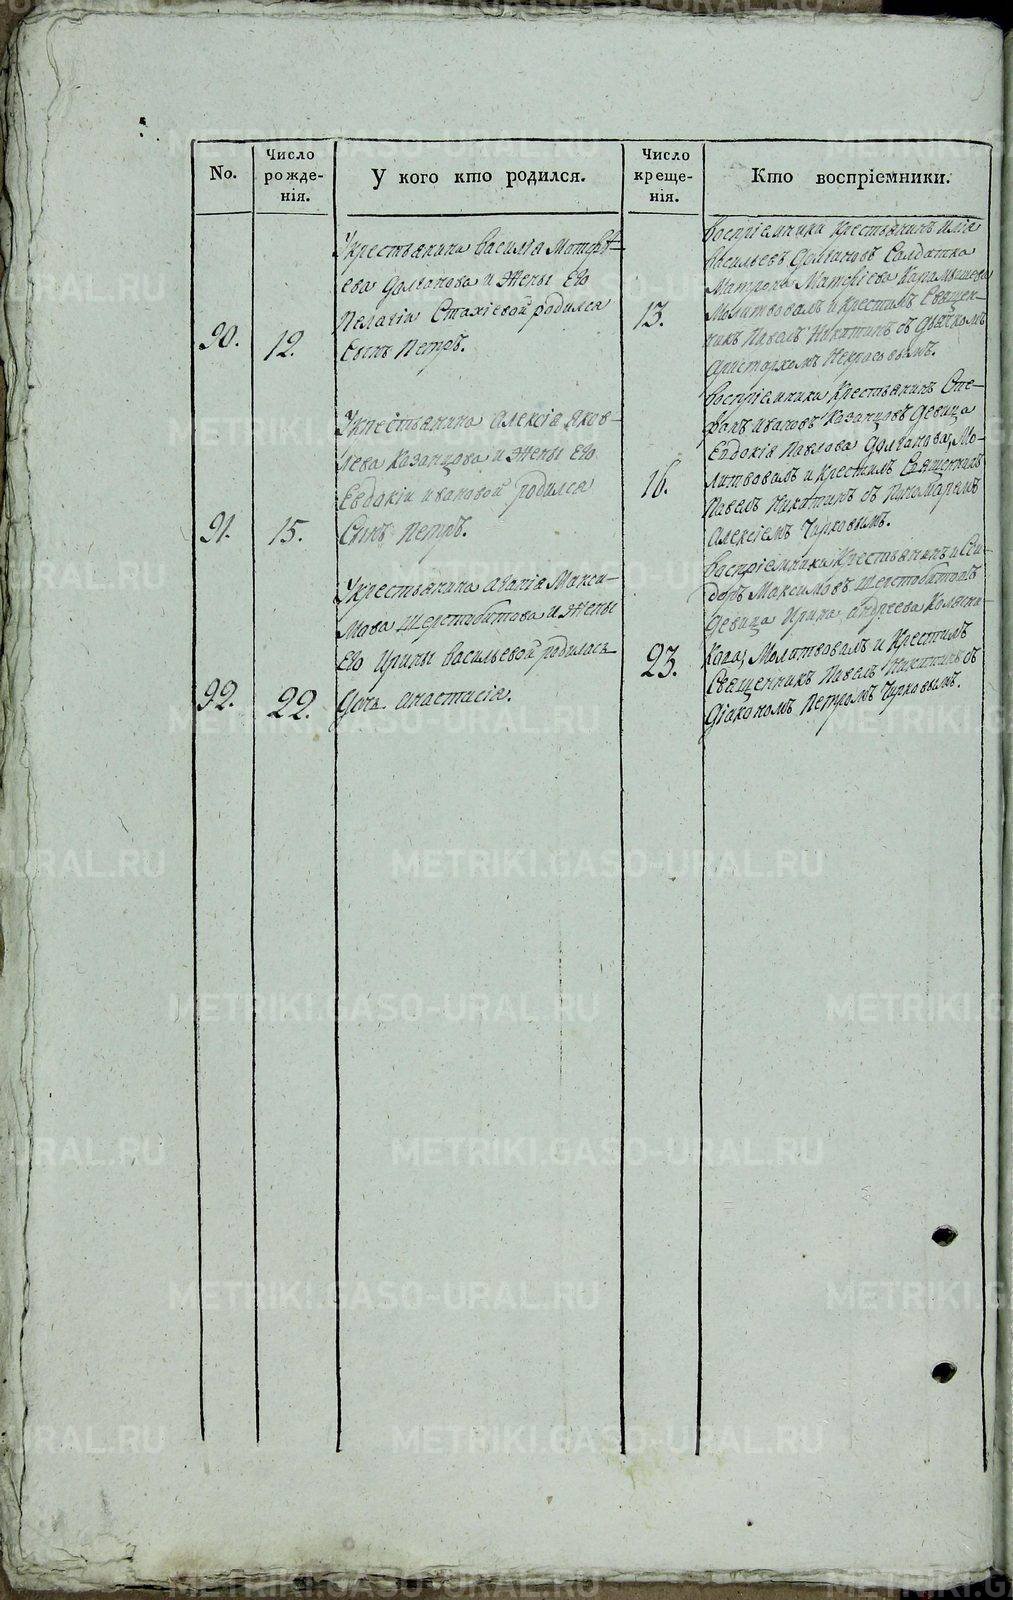 No.
Число рожде-нія.
У кого кто родился.
Число креще-нія.
Кто воспріемники.
90.
12.
Укрестьянина Василія Матфѣ-
ева Долганова и Жены Его
Пелагіи Стахіевой родился
Сынъ Петръ.
13.
Воспріемники Крестьянинъ Илія
Васильевъ Долгановъ Солдатка
Матрона Матфіева Карамышева
Молитвовалъ и Крестилъ Священ-
никъ Павелъ Никитинъ съ Дьячкомъ
Аристархомъ Некрасовымъ.
91.
15.
Укрестьянина Алексіа Яков-
лева Казанцова и Жены Его
Евдокіи Ивановой родился
Сынъ Петръ.
16.
Воспріемники Крестьянинъ Сте-
фанъ Ивановъ Казанцовъ Девица
Евдокія Павлова Долганова, Мо-
литвовалъ и Крестилъ Священникъ
Павелъ Никитинъ съ Пономаремъ
Алексіемъ Чирковымъ.
92.
22.
Укрестьянина Максі-
мова Шерстобитова и Жены
Его Ирины Васильевой родилась
Дочь Анастасія.
23.
Воспріемники Крестьянинъ Си-
доръ Максимовъ Шерстобитовъ
Девица Ирина Андреева Коляски-
Кова, Молитвовалъ и Крестилъ
Священникъ Павелъ Никитинъ съ
Діакономъ Петромъ Чирковымъ.
METRIKI.GASO-URAL.RU